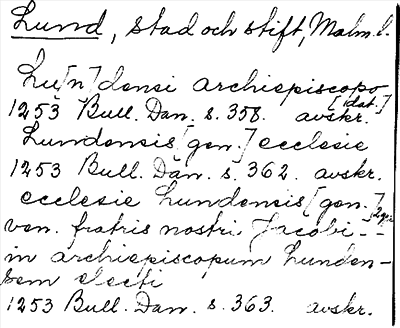 Lund, stad och stift, Malm. l.
Lu[n]densi archiepiscopo
[dat.]
1253 Bull. Dan. s. 358. avskr.
Lundensis [gen.] ecclesie
1253 Bull. Dan. s. 362. avskr.
ecclesie Lundensis [gen.]
ven. fratris nostri Jacobi --
in archiepiscopum Lunden-
sem electi
1253 Bull. Dan. s. 363. avskr.